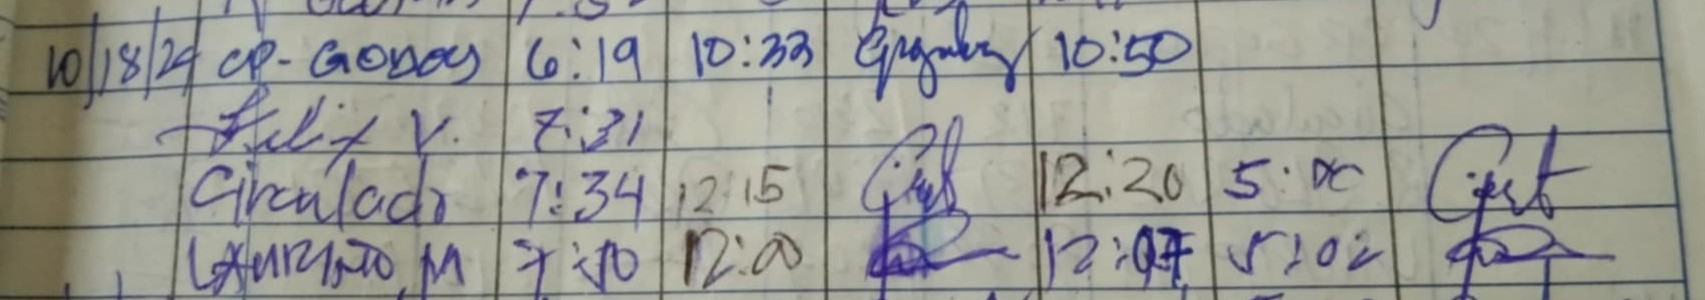 10/18/24 CP-GODOY 6:19 10:33 10:50
Felix V. 7:31
Circulado 7:34 12:15 12:20 5:00
LAURENTO, M 7:50 12:00 12:07 5:02